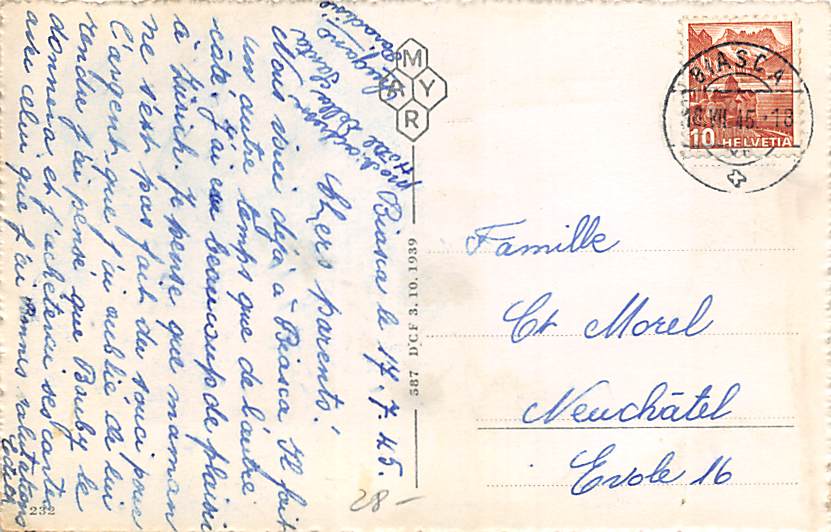 Biasca le 17.7.45.
Chers parents!
Nous voici déjà à Biasca. Il fait
un autre temps que de l'autre
côté. J'ai eu beaucoup de plaisir
à Zürich. Je pense que maman
ne s'est pas fait du souci pour
l'argent que j'ai oublié de lui
rendre j'ai pensé que Bouby le
donnera et j'achèterai ses cartes
avec celui que j'ai
salutations
Hôtel Della
MYAR
587 D'CF 3.10.1939
232
28-
BIASCA
18.VII.45.-18
10 HELVETIA
Famille
Ct Morel
Neuchâtel
Evole 16